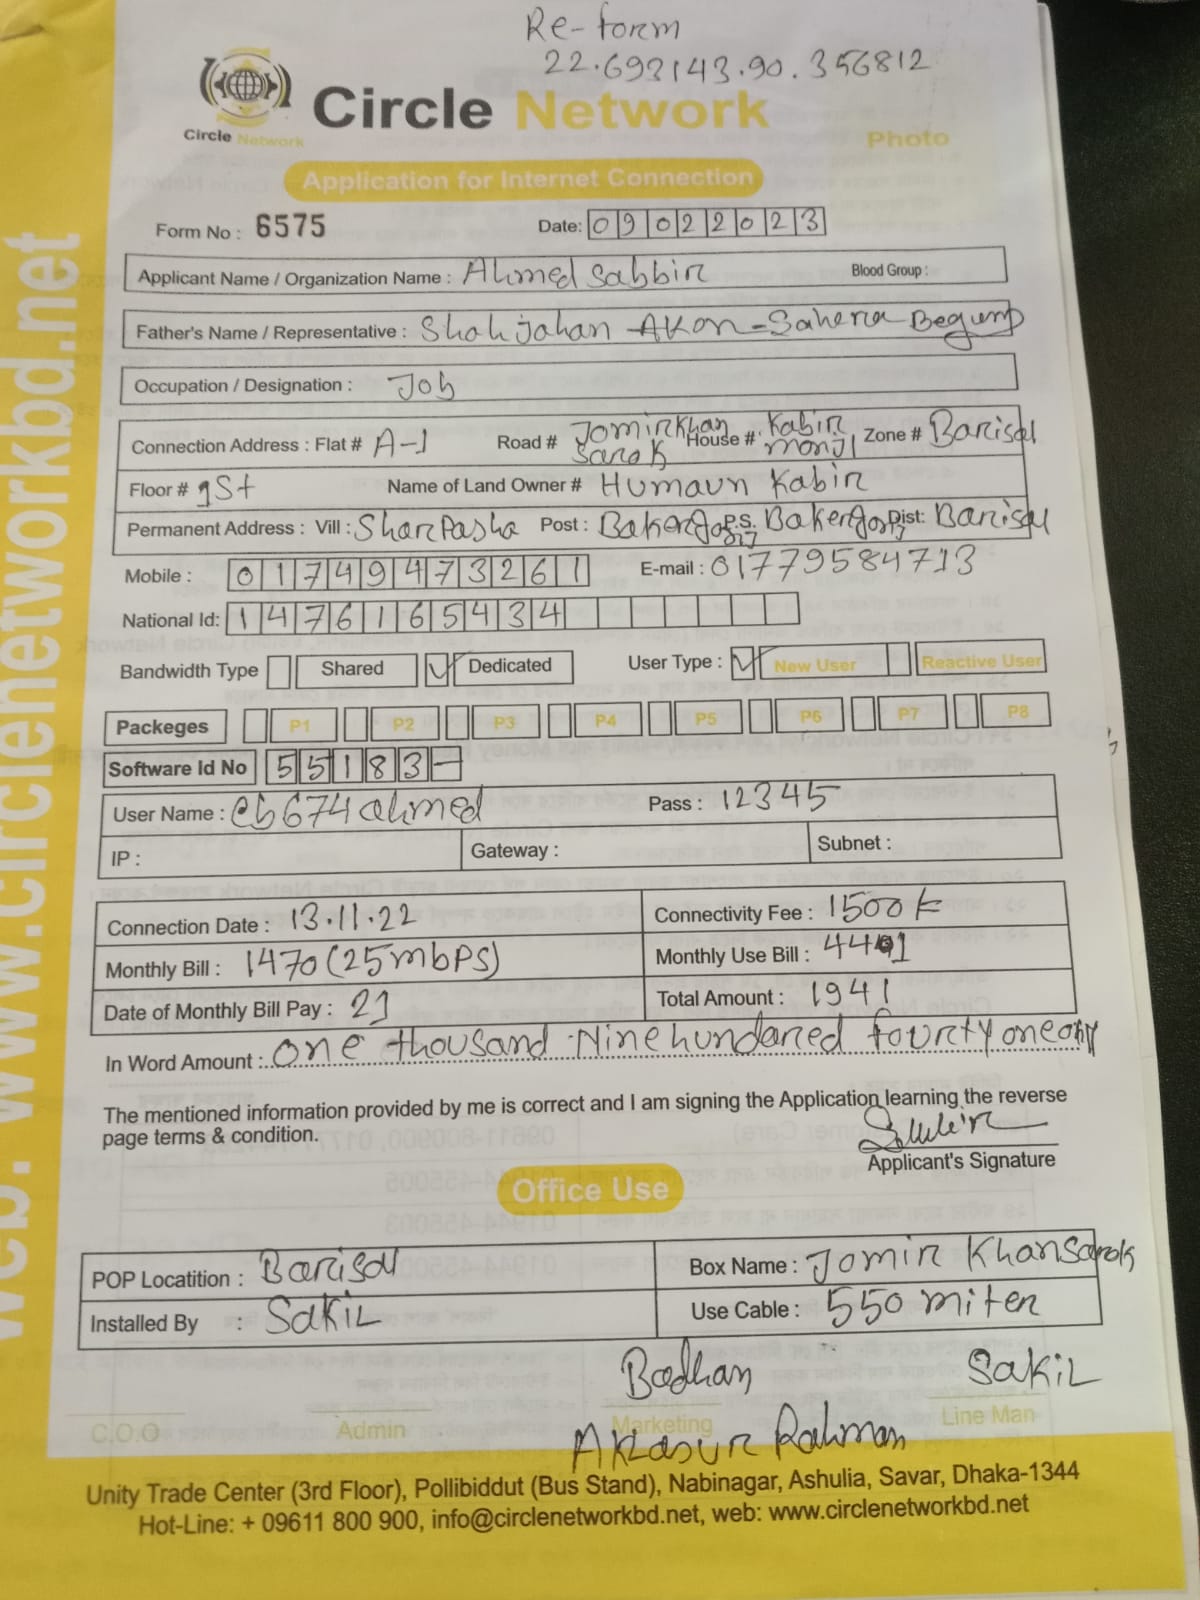 Re-form
22.693143.90.356812
Circle Network
Circle Network
Photo
Application for Internet Connection
Form No : 6575 Date: 09022023
Applicant Name / Organization Name : Ahmed Sabbir Blood Group :
Father's Name / Representative : Shahjahan Akon - Sahera Begum
Occupation / Designation : Job
Connection Address : Flat # A-1 Road # Jomirkhan Sarok House # Kabir monjl Zone # Barisal
Floor # 1st Name of Land Owner # Humaun Kabir
Permanent Address : Vill : Sharpasha Post : P.S. Dist: Barisal
Mobile : 01749473261 E-mail : 01779584713
National Id: 1476165434
Bandwidth Type Shared Dedicated User Type : New User Reactive User
Packeges P1 P2 P3 P4 P5 P6 P7 P8
Software Id No 55183-
User Name : cb674ahmed Pass : 12345
IP : Gateway : Subnet :
Connection Date : 13.11.22 Connectivity Fee : 1500 tk
Monthly Bill : 1470 (25mbps) Monthly Use Bill :
Date of Monthly Bill Pay : 21 Total Amount : 1941
In Word Amount : One thousand Nine hundared fourty one only
The mentioned information provided by me is correct and I am signing the Application learning the reverse
page terms & condition.
Applicant's Signature
Office Use
POP Locatition : Barisal Box Name : Jomir Khan Sarok
Installed By : Sakil Use Cable : 550 miter
Badhan Sakil
C.O.O Admin Marketing Line Man
Rahman
Unity Trade Center (3rd Floor), Pollibiddut (Bus Stand), Nabinagar, Ashulia, Savar, Dhaka-1344
Hot-Line: + 09611 800 900, info@circlenetworkbd.net, web: www.circlenetworkbd.net
web: www.circlenetworkbd.net